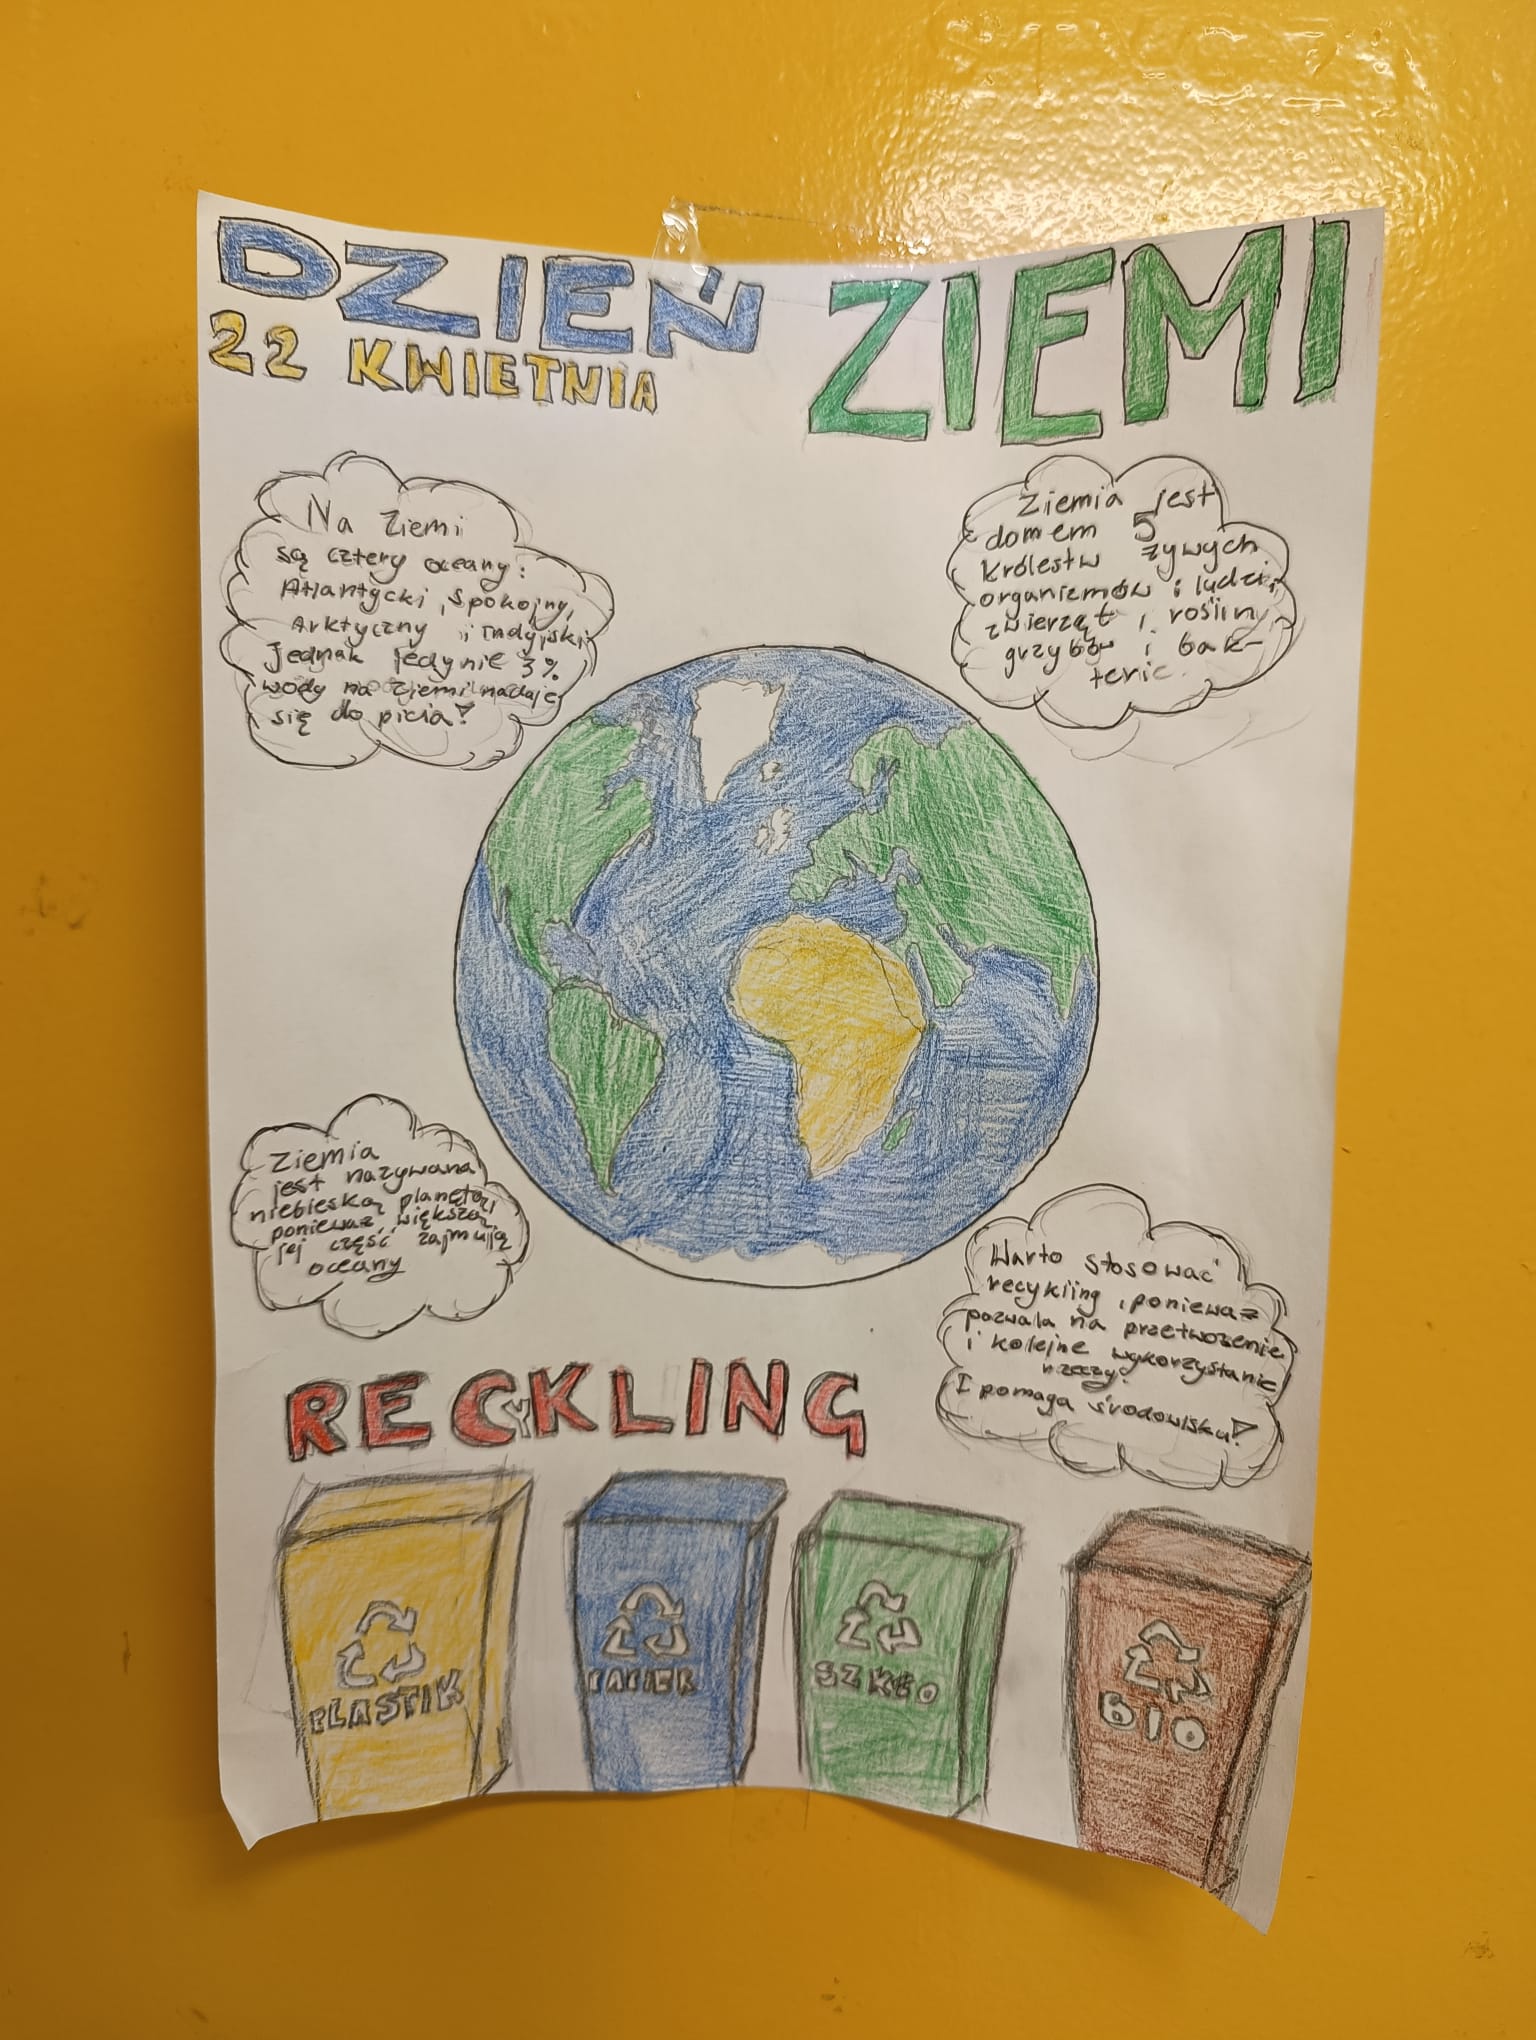 DZIEŃ ZIEMI
22 KWIETNIA
Na Ziemi
są cztery oceany:
Atlantycki, Spokojny,
Arktyczny i Indyjski.
Jednak jedynie 3%
wody na ziemi nadaje
się do picia!
Ziemia jest
domem 5
królestw żywych
organizmów i ludzi,
zwierząt, roślin,
grzybów i bak-
terie.
Ziemia
jest nazywana
niebieską planetą,
ponieważ większą
jej część zajmują
oceany
Warto stosować
recykling, ponieważ
pozwala na przetwożenie
i kolejne wykorzystanie
rzeczy.
I pomaga środowisku!
RECYKLING
PLASTIK
PAPIER
SZKŁO
BIO